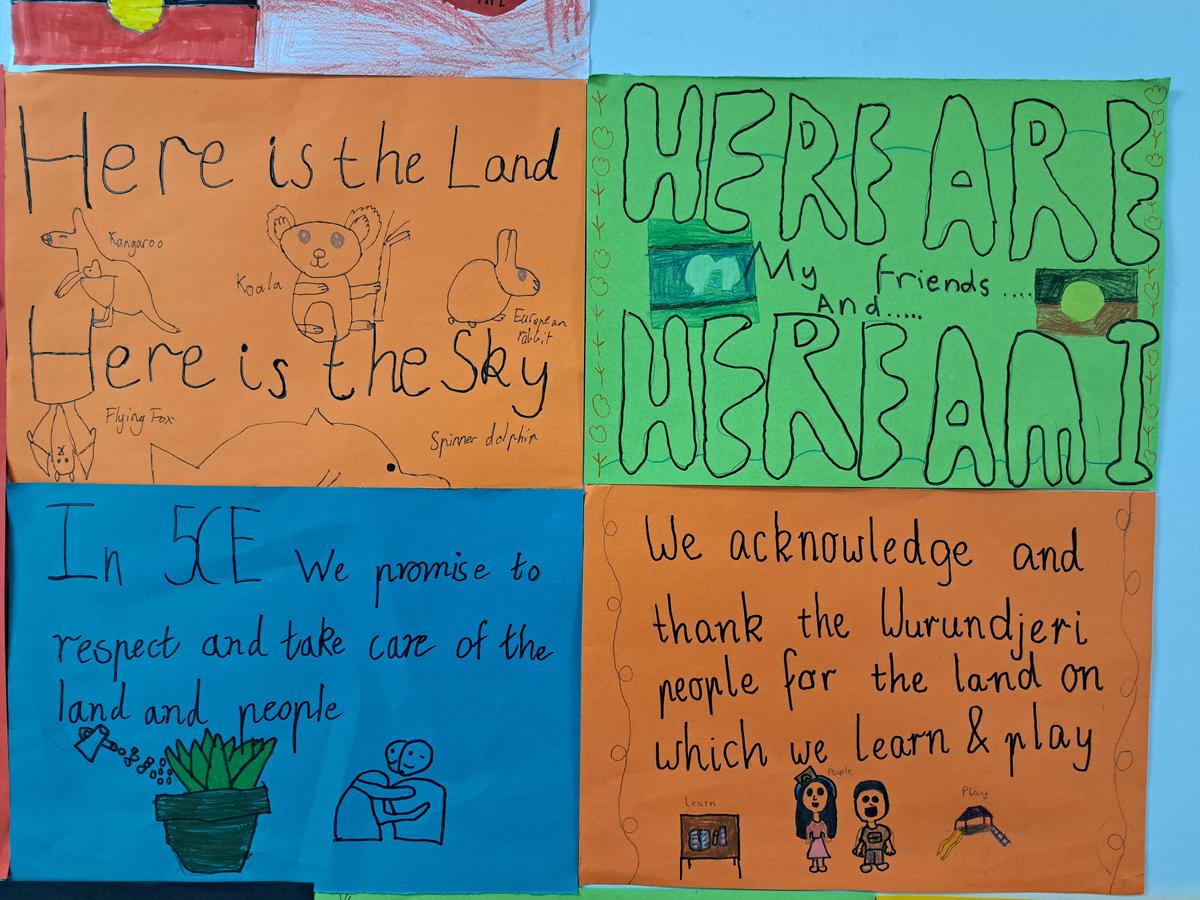 Here is the Land
Kangaroo
Koala
European
rabbit
Here is the Sky
Flying Fox
Spinner dolphin
HERE ARE
My friends ....
And.....
HERE AM I
In 5CE We promise to
respect and take care of the
land and people
We acknowledge and
thank the Wurundjeri
people for the land on
which we learn & play
Learn
People
Play